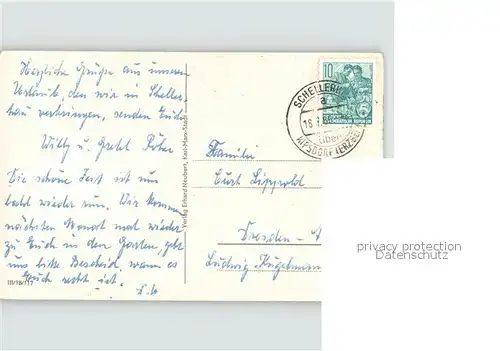 Herzliche Grüße aus unserem
Urlaub, den wir in Scheller-
hau verbringen, senden Euch
Willy u. Gretl
Die schöne Zeit ist nun
bald wieder um. Wir kommen
nächsten Monat mal wieder
zu Euch in den Garten, gebt
uns bitte Bescheid, wann es
Euch recht ist.
III/18/117
Verlag Erhard Neubert, Karl-Marx-Stadt
10
SCHELLERH
a
18
über
KIPSDORF (ERZGEB
Familie
Curt Lippold
Dresden-A
Ludwig Kugelmann
privacy protection
Datenschutz